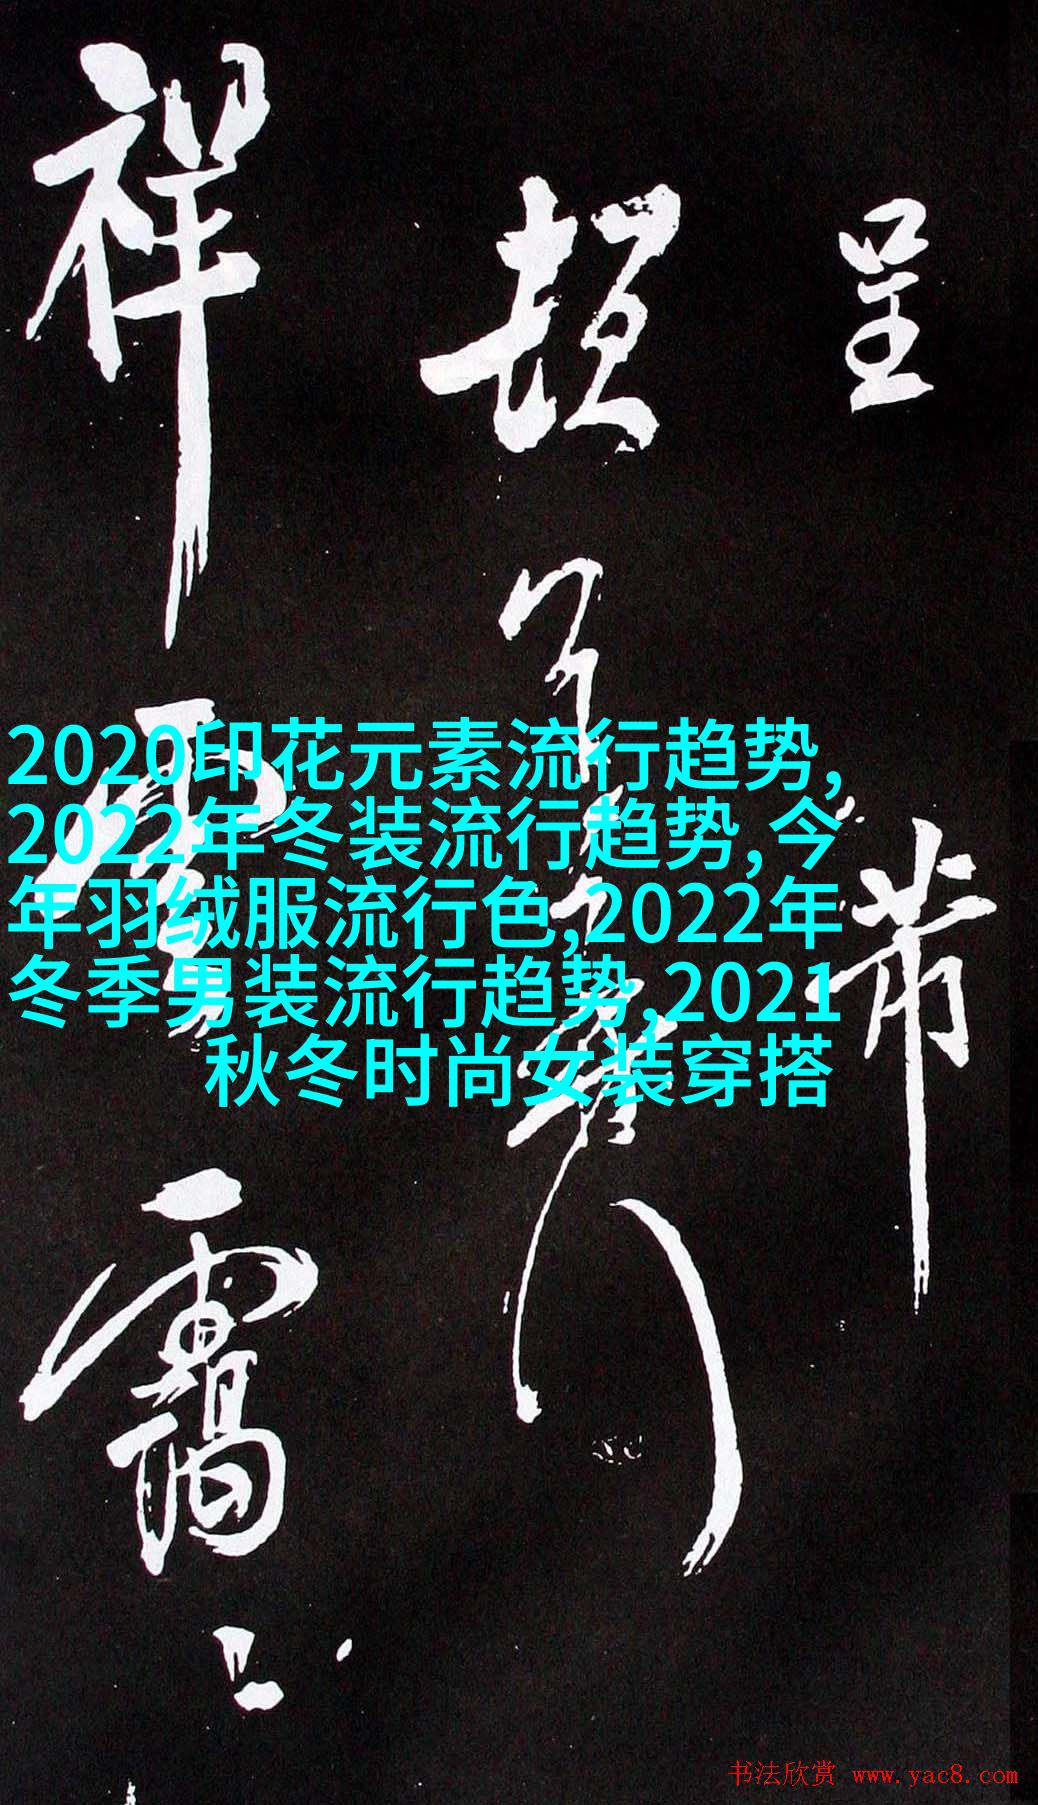 呈
芾
顿
首
祥
雲
霭
2020印花元素流行趋势,
2022年冬装流行趋势,今
年羽绒服流行色,2022年
冬季男装流行趋势,2021
秋冬时尚女装穿搭
书法欣赏 www.yac8.com